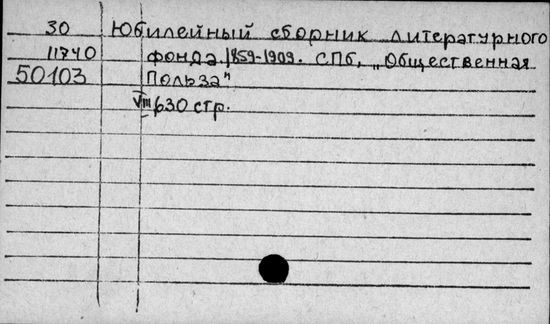 30 Юбилейный сборник литературного
11740 фонда 1859-1909. СПб, „Общественная
50103 Польза"
VIII 630 стр.